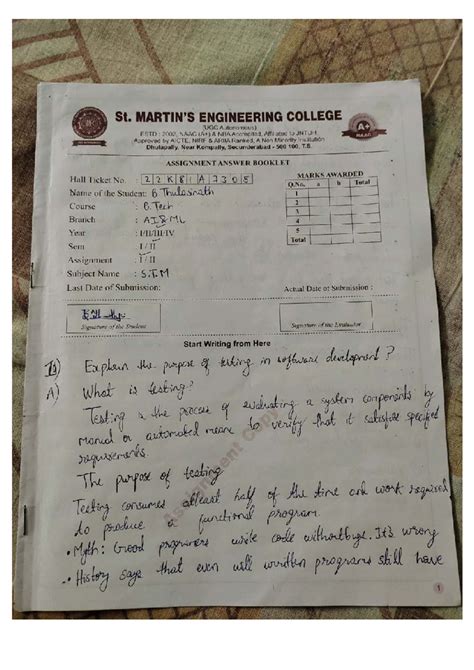 St. MARTIN'S ENGINEERING COLLEGE
(UGC Autonomous)
ESTD : 2002, NAAC (A+) & NBA Accredited, Affiliated to JNTUH
Approved by AICTE, NIRF & ARIIA Ranked, A Non Minority Institution
Dhulapally, Near Kompally, Secunderabad - 500 100, T.S.
A+
NAAC
ASSIGNMENT ANSWER BOOKLET
Hall Ticket No. 22K81A7305
Name of the Student: B. Thulasinath
Course : B.Tech
Branch : AI&ML
Year : I/II/III/IV
Sem : I / II
Assignment : I / II
Subject Name : S.T.M
MARKS AWARDED
Q.No. a b Total
1
2
3
4
5
Total
Last Date of Submission:
Actual Date of Submission :
Signature of the Student
Signature of the Evaluator
Start Writing from Here
Explain the purpose of testing in software development?
A) What is testing?
Testing is the process of evaluating a system components by
manual or automated means to verify that it satisfies specified
requirements.
The purpose of testing
Testing consumes atleast half of the time and work required
to produce a functional program.
• Myth: Good programers write code without bugs. It's wrong
• History says that even well written programs still have
Assignment Copy
1